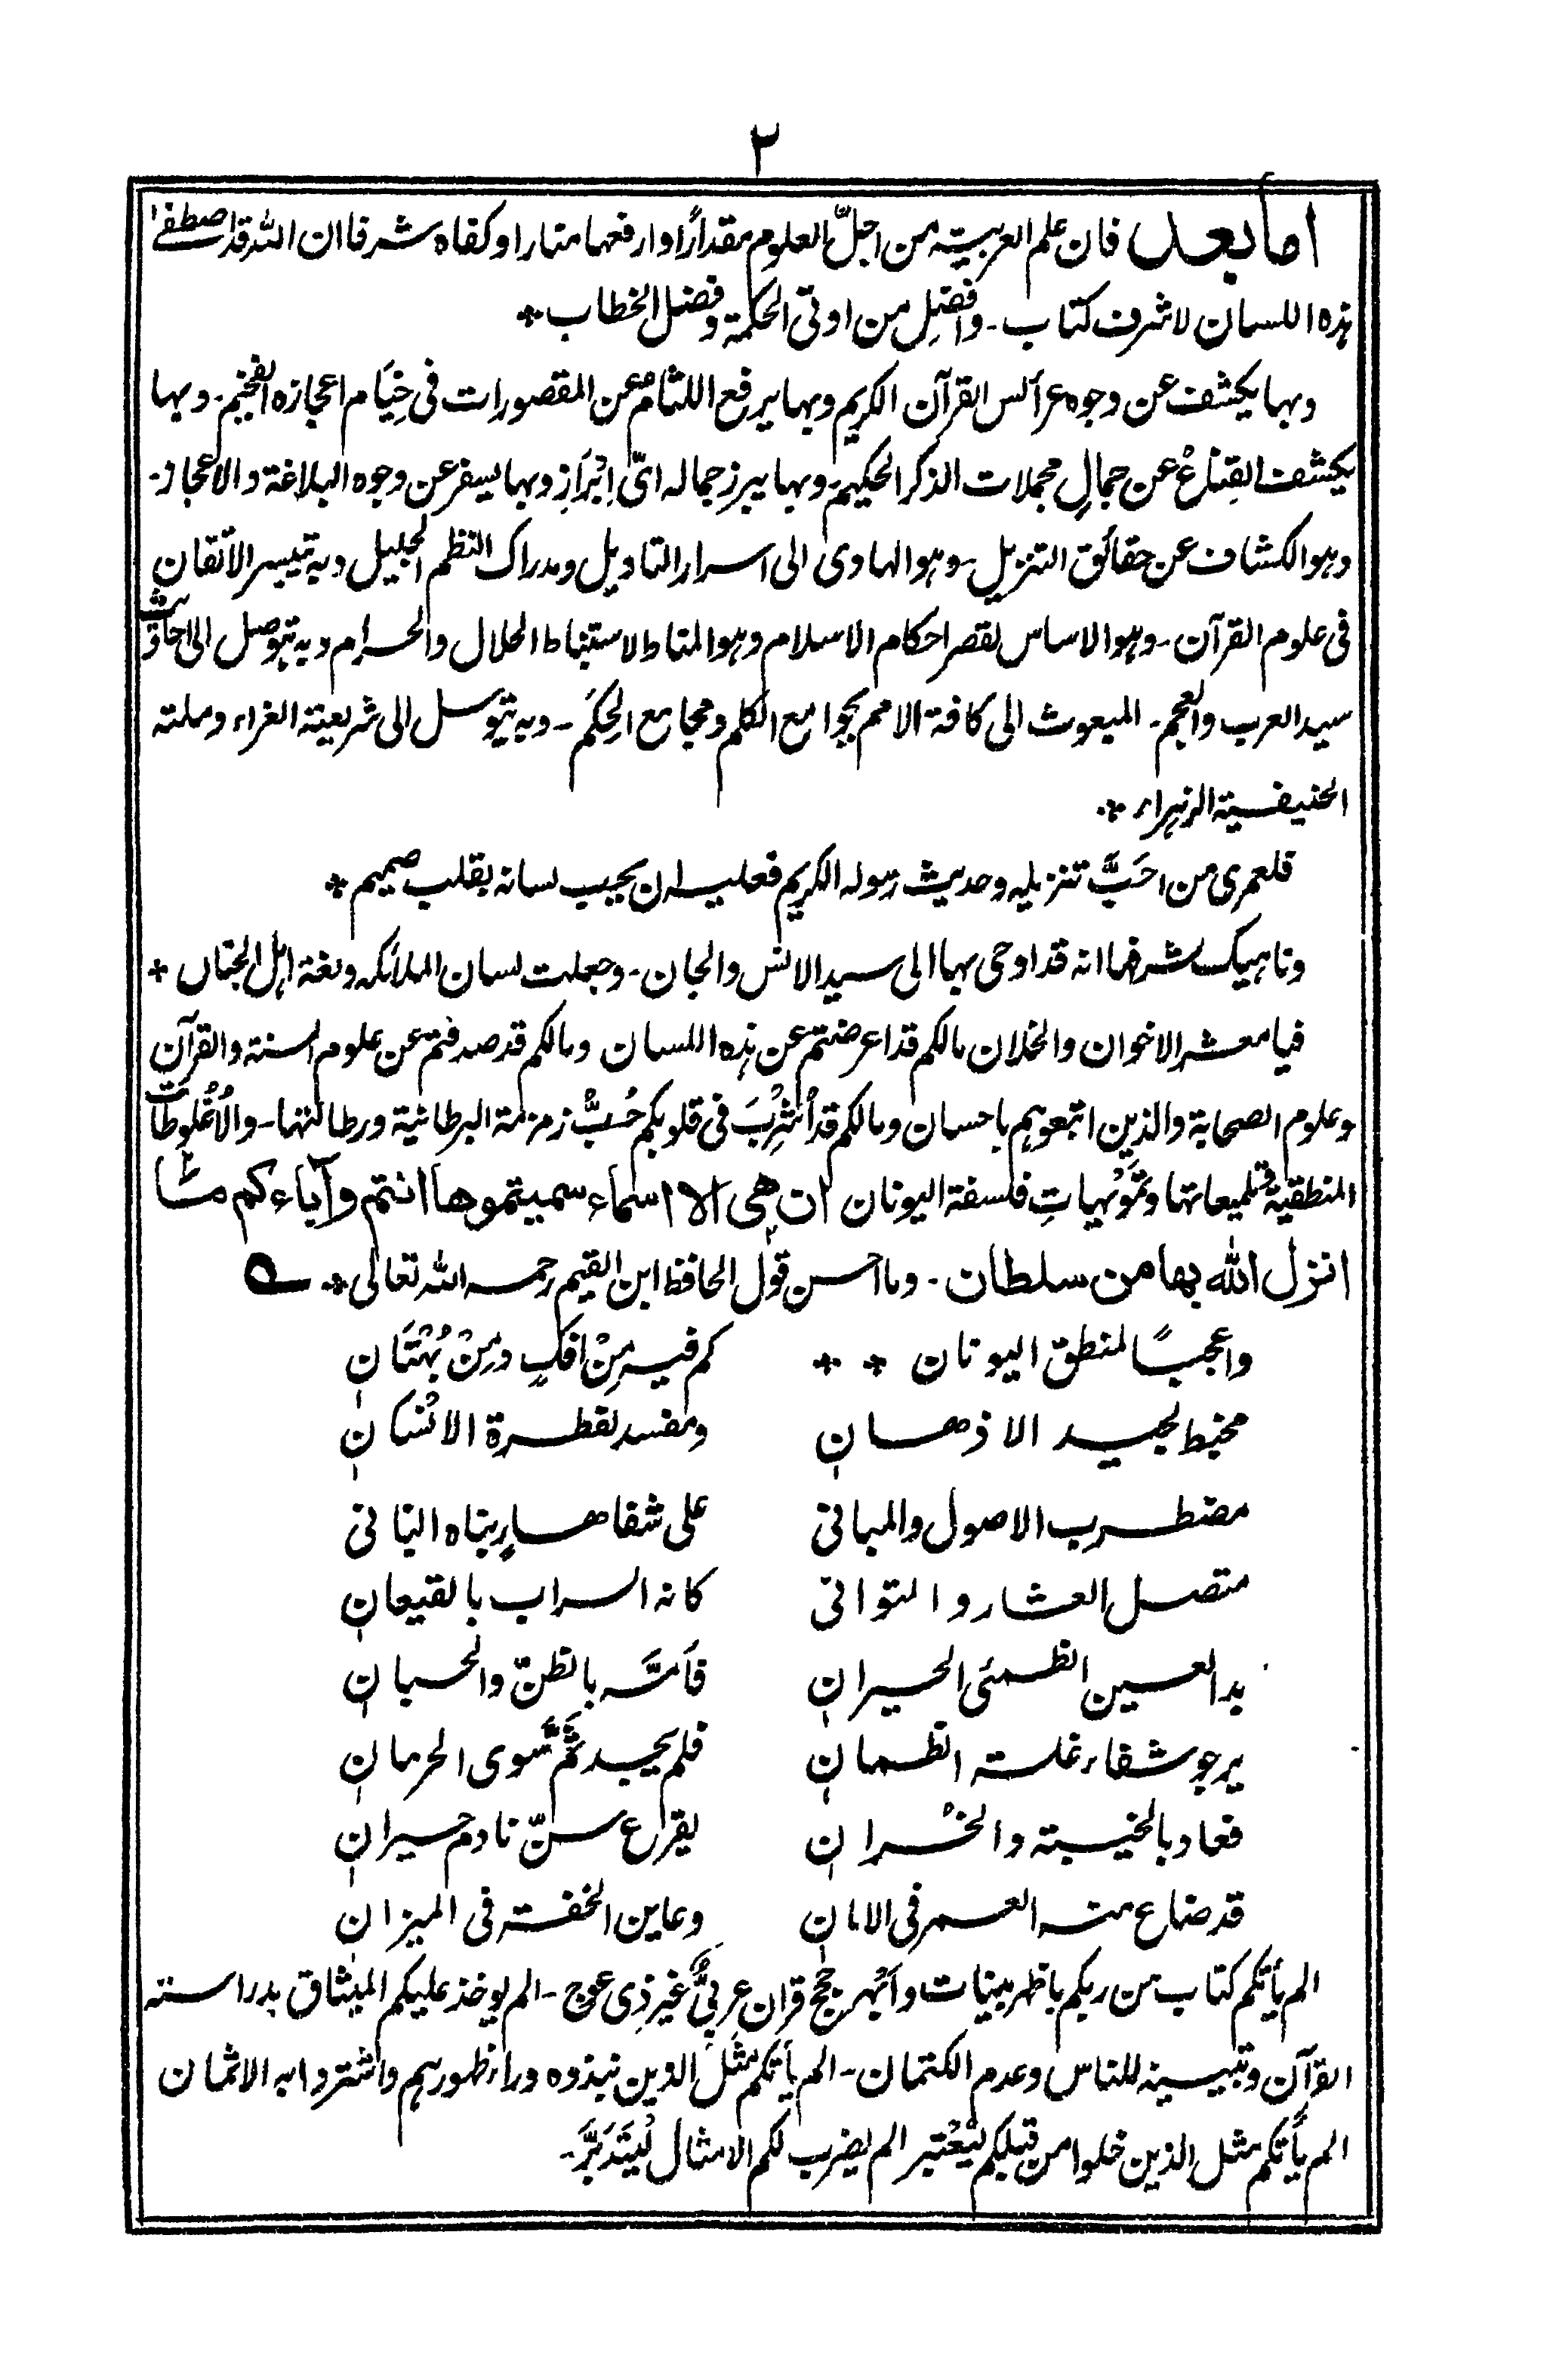 ٢
اما بعد فان علم العربية من اجلّ العلوم مقدارًا وارفعها منارا وكفاه شرفا ان الله قد اصطفى
هذه اللسان لاشرف كتاب ـ وافضلِ من اوتى الحكمة وفصل الخطاب ٭
وبها يكشف عن وجوه عرائس القرآن الكريم وبها يرفع اللثام عن المقصورات فى خِيَام اعجازه الفخيم ـ وبها
يكشف القِنَاعُ عن جمالِ مجملات الذكر الحكيم ـ وبها يبرز جماله اىّ اِبْرَازِ وبها يسفر عن وجوه البلاغة والاعجاز ـ
وهو الكشاف عن حقائق التنزيل ـ وهو الهادى الى اسرار التاويل ومدراك النظم الجليل وبه تيسر الاتقان
فى علوم القرآن ـ وهو الاساس لقصر احكام الاسلام وهو المناط لاستنباط الحلال والحرام وبه يتوصل الى احاديث
سيد العرب والعجم ـ المبعوث الى كافة الامم بجوامع الكلم ومجامع الحِكَم ـ وبه يتوسل الى شريعته الغراء وملته
الحنيفية الزهراء ٭
فلعمرى من احَبَّ تنزيله وحديث رسوله الكريم فعليه ان يحب لسانه بقلب صميم ٭
وناهيك شرفها انه قد اوحى بها الى سيد الانس والجان ـ وجعلت لسان الملائكه ولغة اهل الجنان ٭
فيا معشر الاخوان والخلان مالكم قد اعرضتم عن هذه اللسان ومالكم قد صدفتم عن علوم السنة والقرآن
وعلوم الصحابة والذين اتبعوهم باحسان ومالكم قد اُشْرِبَ فى قلوبكم حُبُّ زمزمة البرطانية ورطانتها ـ والاُغْلُوطَات
المنطقية وتلميعاتها وتَمْوِيهاتِ فلسفة اليونان ان هى الا اسماء سميتموها انتم وآباءكم مّا
انزل الله بها من سلطان ـ وما احسن قول الحافظ ابن القيم رحمه الله تعالى ٭
واعجبًا لمنطق اليونان ٭ ٭ كم فيه مِنْ افكٍ ومِنْ بُهْتَانِ
مخبط لجيد الاذهان ومفسد لفطرة الانْسَانِ
مضطرب الاصول والمبانى على شفا هارٍ بناه البانى
متصل العثار والتوانى كانه السراب بالقيعانِ
بدا لعين الظمئ الحيران فاَمَّه بالظنّ والحسبان
يرجو شفاء غلته الظمان فلم يجد ثَمَّ سَوى الحرمان
فعاد بالخيبته والخْسران يقرع سنّ نادم حيران
قد ضاع منه العمر فى الامان وعاين الخفته فى الميزان
الم يأتكم كتاب من ربكم باظهر بينات وابهر حجج قران عربىٌّ غير ذِى عوج ـ الم يوخذ عليكم الميثاق بدراسته
القرآن وتبيينه للناس وعدم الكتمان ـ الم يأتكم مثَل الذين نبذوه وراء ظهورهم واشتروا به الاثمان
الم يأتكم مثل الذين خلوا من قبلكم لِيُعْتبر الم يضرب لكم الامثال لُيتَدَبَّرَ ـ